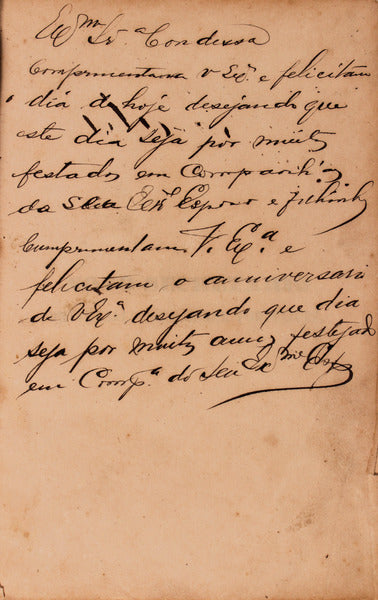 Exmª Srª Condessa
Comprimentam a V Exª. e felicitam
dia de hoje desejando que
este dia seja por muitos
festados em Companhia
da Sua Exª Esposo e filhinhos
Cumprimentam V. Exª. e
felicitam o anniversari
de V Exª desejando que dia
seja por muitos annos festejad
em Compª do Seu Exmº Esp